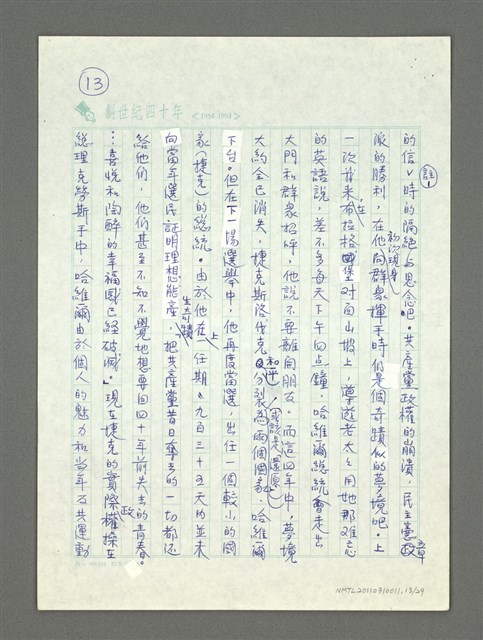 13
創世紀四十年 <1954-1994>
的信∨時的隔絕與思念吧。共產黨政權的崩潰，民主憲政
註1
章
派的勝利，在他向群衆揮手時們是個奇蹟似的夢境吧。上
初次現身
一次我來布拉格堡對面山坡上，導遊老太太用她那難忘
在
的英語說，差不多每天下午四點鐘，哈維爾總統會走出
大門和群衆招呼，他說不要離開朋友。而這四年中，夢境
大約全已消失，捷克斯洛伐克分裂爲兩個國家，哈維爾
和逆（或該是還原）
下台。但在下一場選舉中，他再度當選，出任一個較小的國
家（捷克）的總統。由於他在一任期（九百三十五天內）並未
上
向當年選民証明理想能產，把共產黨昔日奪去的一切都还
生奇蹟
給他們，他們甚至不知不覺地想要回四十年前失去的青春。
…喜悅和陶醉的幸福感已經破滅。」現在捷克的實際權操在
政
總理克勞斯手中，哈維爾由於個人的魅力和当年反共運動
NMTL20110310011,13/29